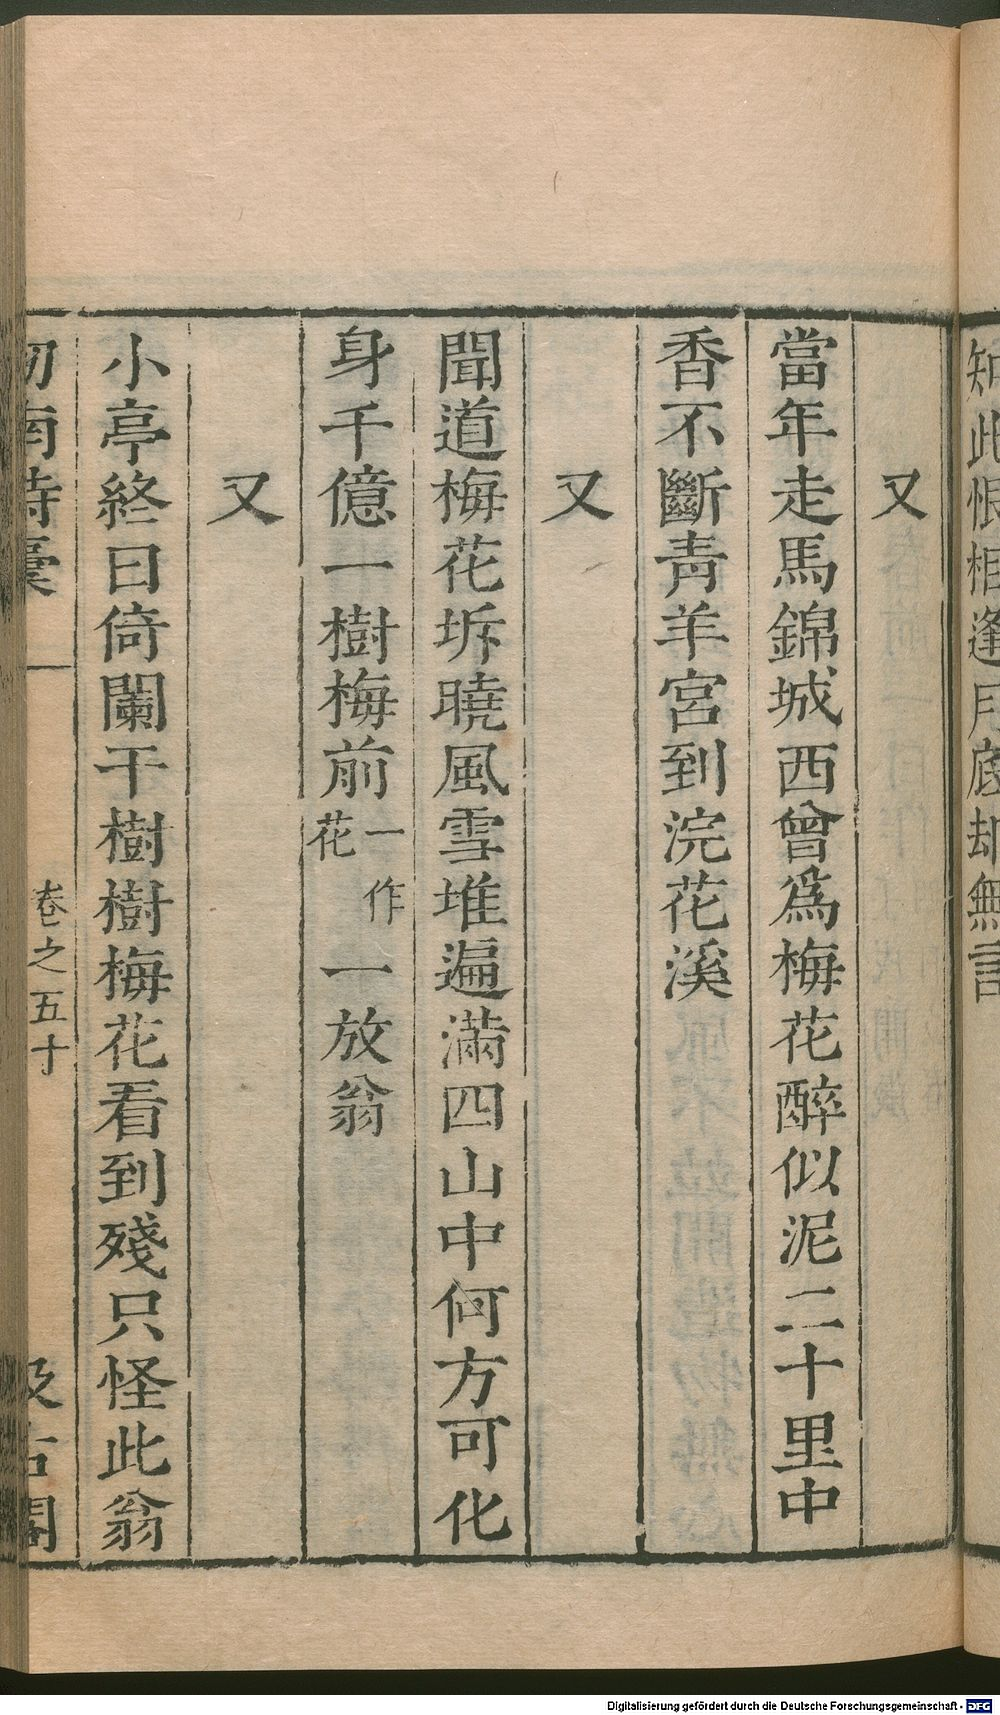 知此恨相逢月底却無言
又
當年走馬錦城西曾爲梅花醉似泥二十里中
香不斷青羊宮到浣花溪
又
聞道梅花坼曉風雪堆遍滿四山中何方可化
身千億一樹梅前一作花一放翁
又
小亭終日倚闌干樹樹梅花看到殘只怪此翁
劒南詩稾 卷之五十 汲古閣
Digitalisierung gefördert durch die Deutsche Forschungsgemeinschaft - DFG